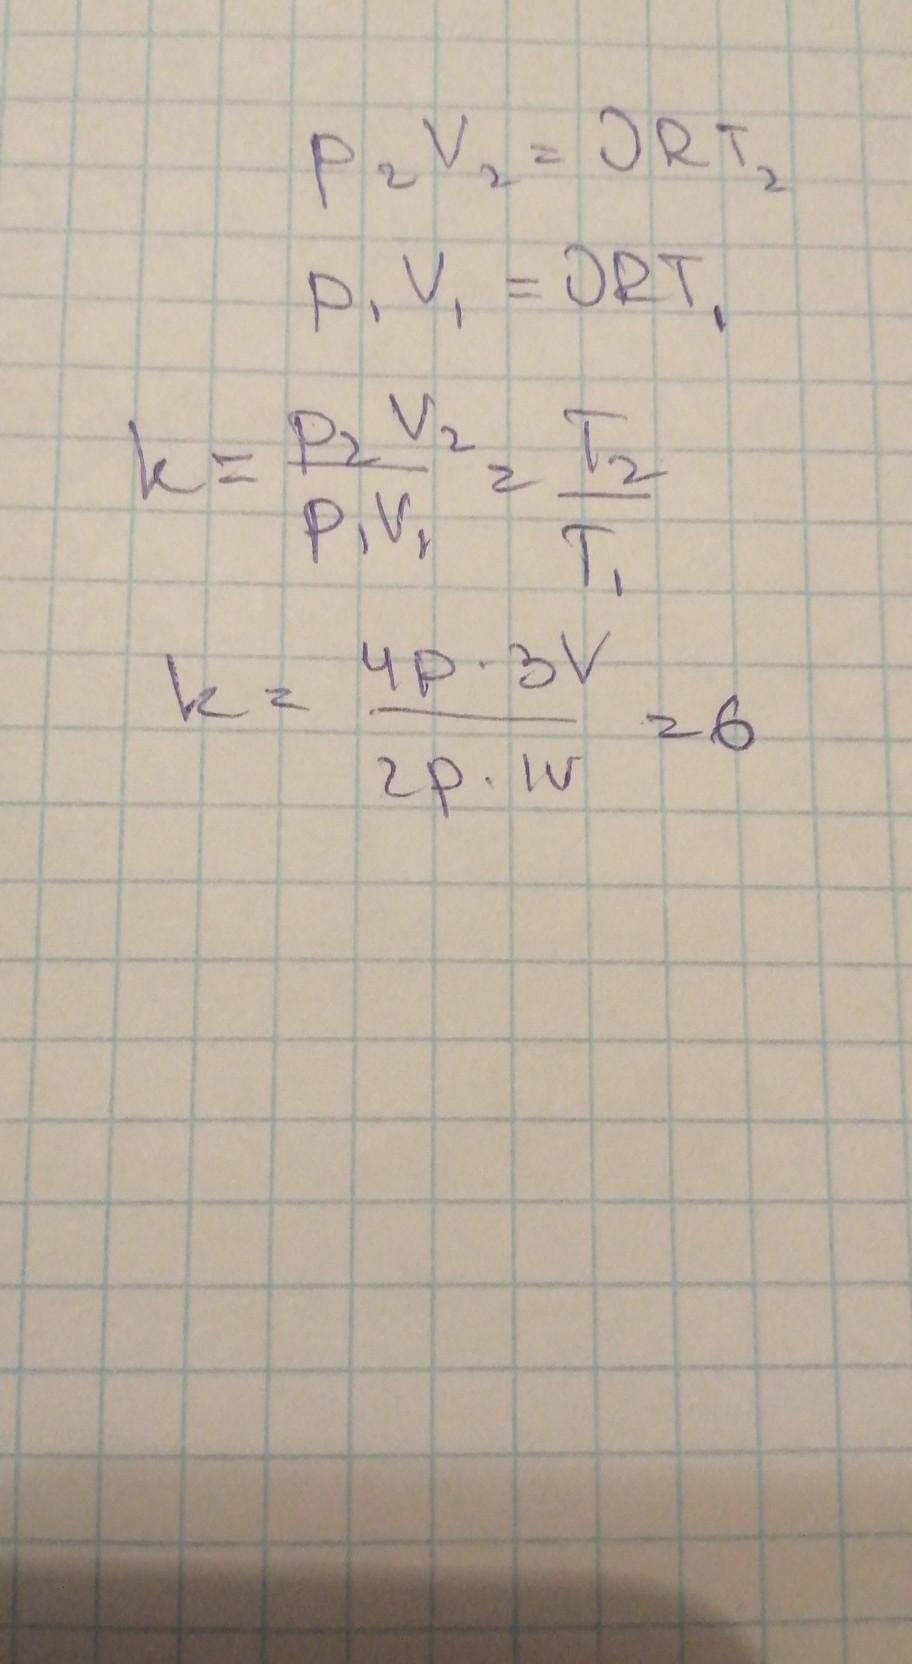 p₂V₂ = νRT₂
p₁V₁ = νRT₁
k = p₂V₂ / p₁V₁ = T₂ / T₁
k = 4p · 3V / 2p · 1V = 6